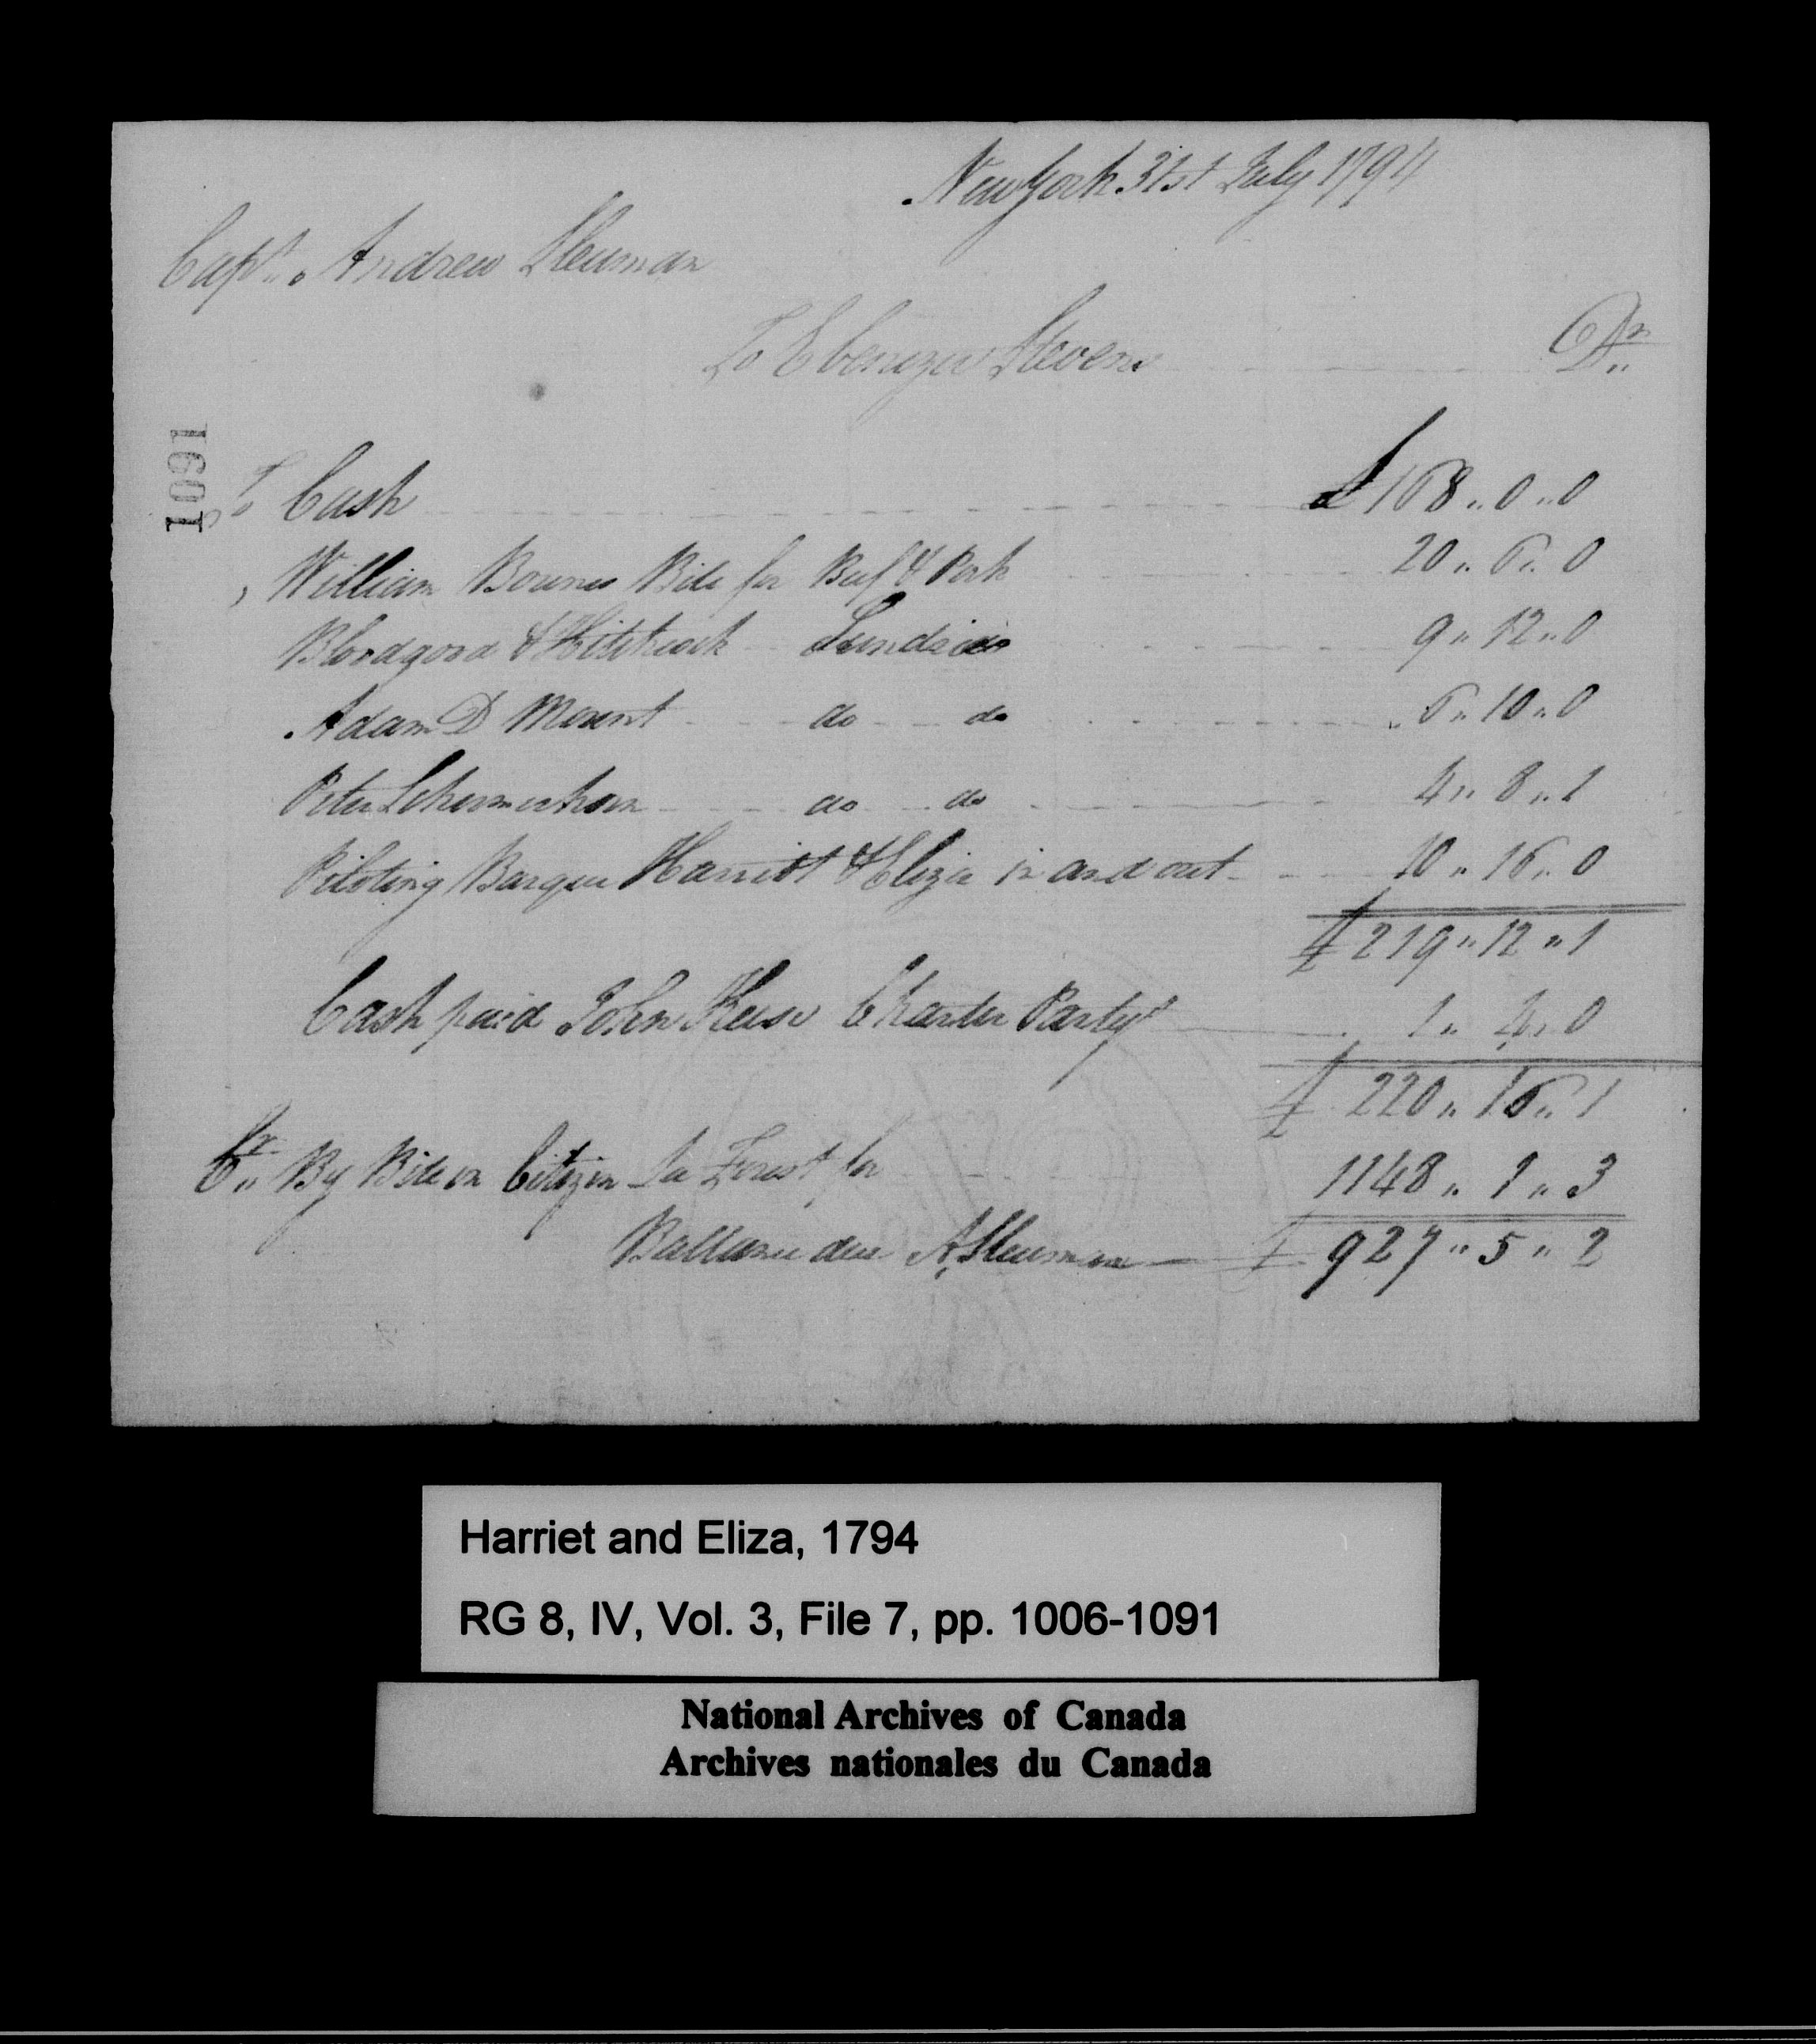 New York 31st July 1794
Capt. Andrew Sleuman
To Ebenezer Stevens Dr
1091
To Cash £168 „ 0 „ 0
„ William Bownes Bill for Beef & Pork 20 „ 6 „ 0
Bloodgood & Hitchcock Sundries 9 „ 12 „ 0
Adam D Mount do do 6 „ 10 „ 0
Peter Schermerhorn do do 4 „ 8 „ 1
Piloting Barque Harriot & Eliza in and out 10 „ 16 „ 0
£ 219 „ 12 „ 1
Cash paid John Keese Charter Partys 1 „ 4 „ 0
£ 220 „ 16 „ 1
Cr „ By Bill on Citizen La Forest for 1148 „ 1 „ 3
Ballance due A Sleuman £ 927 „ 5 „ 2
Harriet and Eliza, 1794
RG 8, IV, Vol. 3, File 7, pp. 1006-1091
National Archives of Canada
Archives nationales du Canada